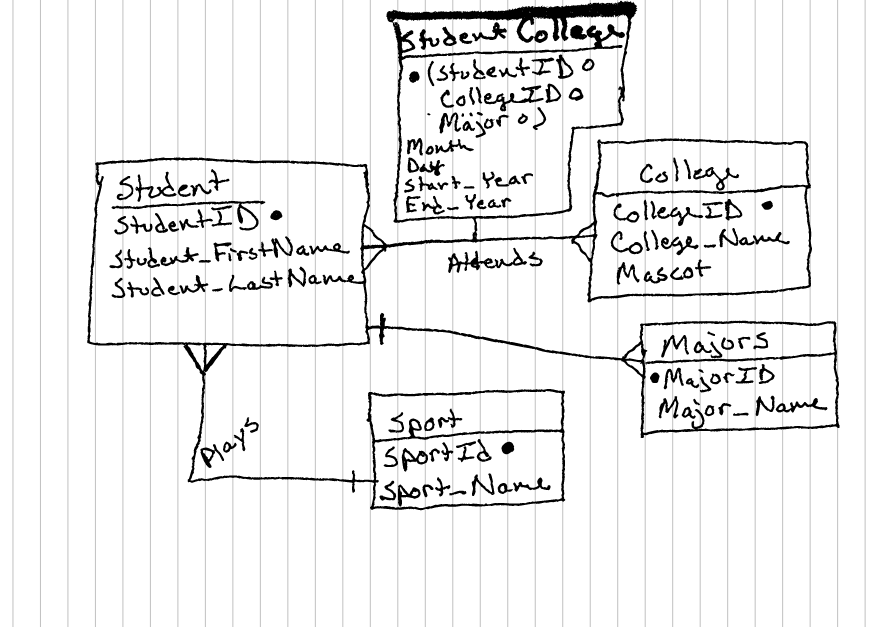 Student College
(StudentID
CollegeID
Major )
Month
Day
Start_Year
End_Year
Student
StudentID
Student_FirstName
Student_LastName
Attends
College
CollegeID
College_Name
Mascot
Majors
MajorID
Major_Name
Plays
Sport
SportId
Sport_Name